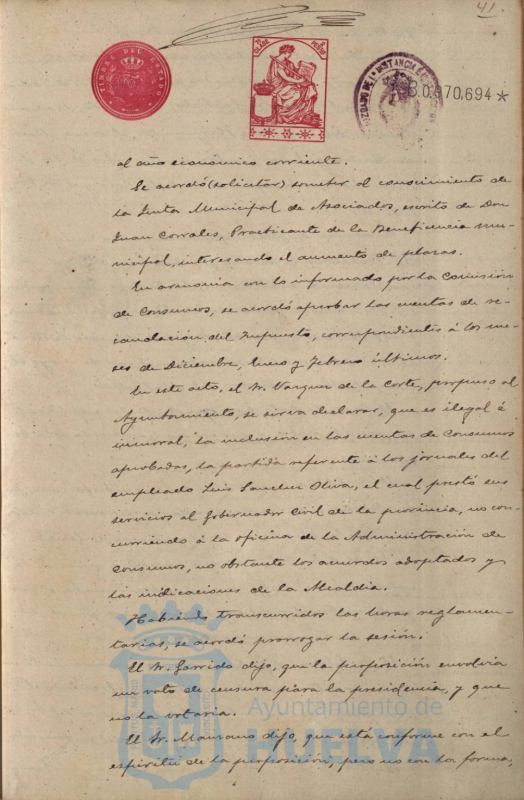 41
TIMBRE DEL ESTADO
JUZGADO DE 1ª INSTANCIA
B.0.870.694*
al año económico corriente.
Se acordó (solicitar) someter al conocimiento de
la Junta Municipal de Asociados, escrito de Don
Juan Corrales, Practicante de la Beneficencia mu-
nicipal, interesando el aumento de plazas.
En armonía con lo informado por la Comisión
de Consumos, se acordó aprobar las cuentas de re-
caudación del Impuesto, correspondientes á los me-
ses de Diciembre, Enero y Febrero últimos.
En este acto, el Sr. Vazquez de la Corte, propuso al
Ayuntamiento, se sirva declarar, que es ilegal é
inmoral, la inclusión en las cuentas de Consumos
aprobadas, la partida referente á los jornales del
empleado Luis Sanchez Oliva, el cual prestó sus
servicios al Gobernador Civil de la provincia, no con-
curriendo á la oficina de la Administración de
Consumos, no obstante los acuerdos adoptados y
las indicaciones de la Alcaldia.
Habiendo transcurridos las horas reglamen-
tarias, se acordó prorrogar la sesión.
El Sr. Garrido dijo, que la proposición envolvia
un voto de censura para la presidencia, y que
no la votaria.
El Sr. Manzano dijo, que está conforme con el
espiritu de la proposición, pero no con la forma,
Ayuntamiento de
HUELVA